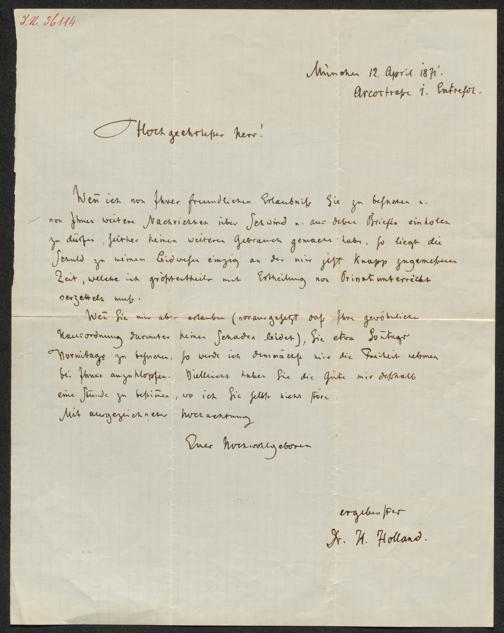 I.N. 36114
München 12. April 1871.
Arcostraße 1. Entresol.
Hochgeehrtester Herr!
Weñ ich von Ihrer freundlichen Erlaubniß Sie zu besuchen u.
von Ihnen weitere Nachrichten über Schwind u. aus deßen Briefen einholen
zu dürfen, seither keinen weiteren Gebrauch gemacht habe, so liegt die
Schuld zu meinem Leidwesen einzig an der mir jetzt knapp zugemeßenen
Zeit, welche ich größtentheils mit Ertheilung von Privatunterricht
verzetteln muß.
Weñ Sie mir aber erlauben (vorausgesetzt daß Ihre gewöhnliche
Hausordnung darunter keinen Schaden leidet), Sie etwa Soñtags
Vormittags zu besuchen, so werde ich demnächst mir die Freiheit nehmen
bei Ihnen anzuklopfen. Vielleicht haben Sie die Güte mir deßhalb
eine Stunde zu bestimen, wo ich Sie selbst nicht störe.
Mit ausgezeichneter Hochachtung
Euer Hochwohlgeboren
ergebenster
Dr. H. Holland.